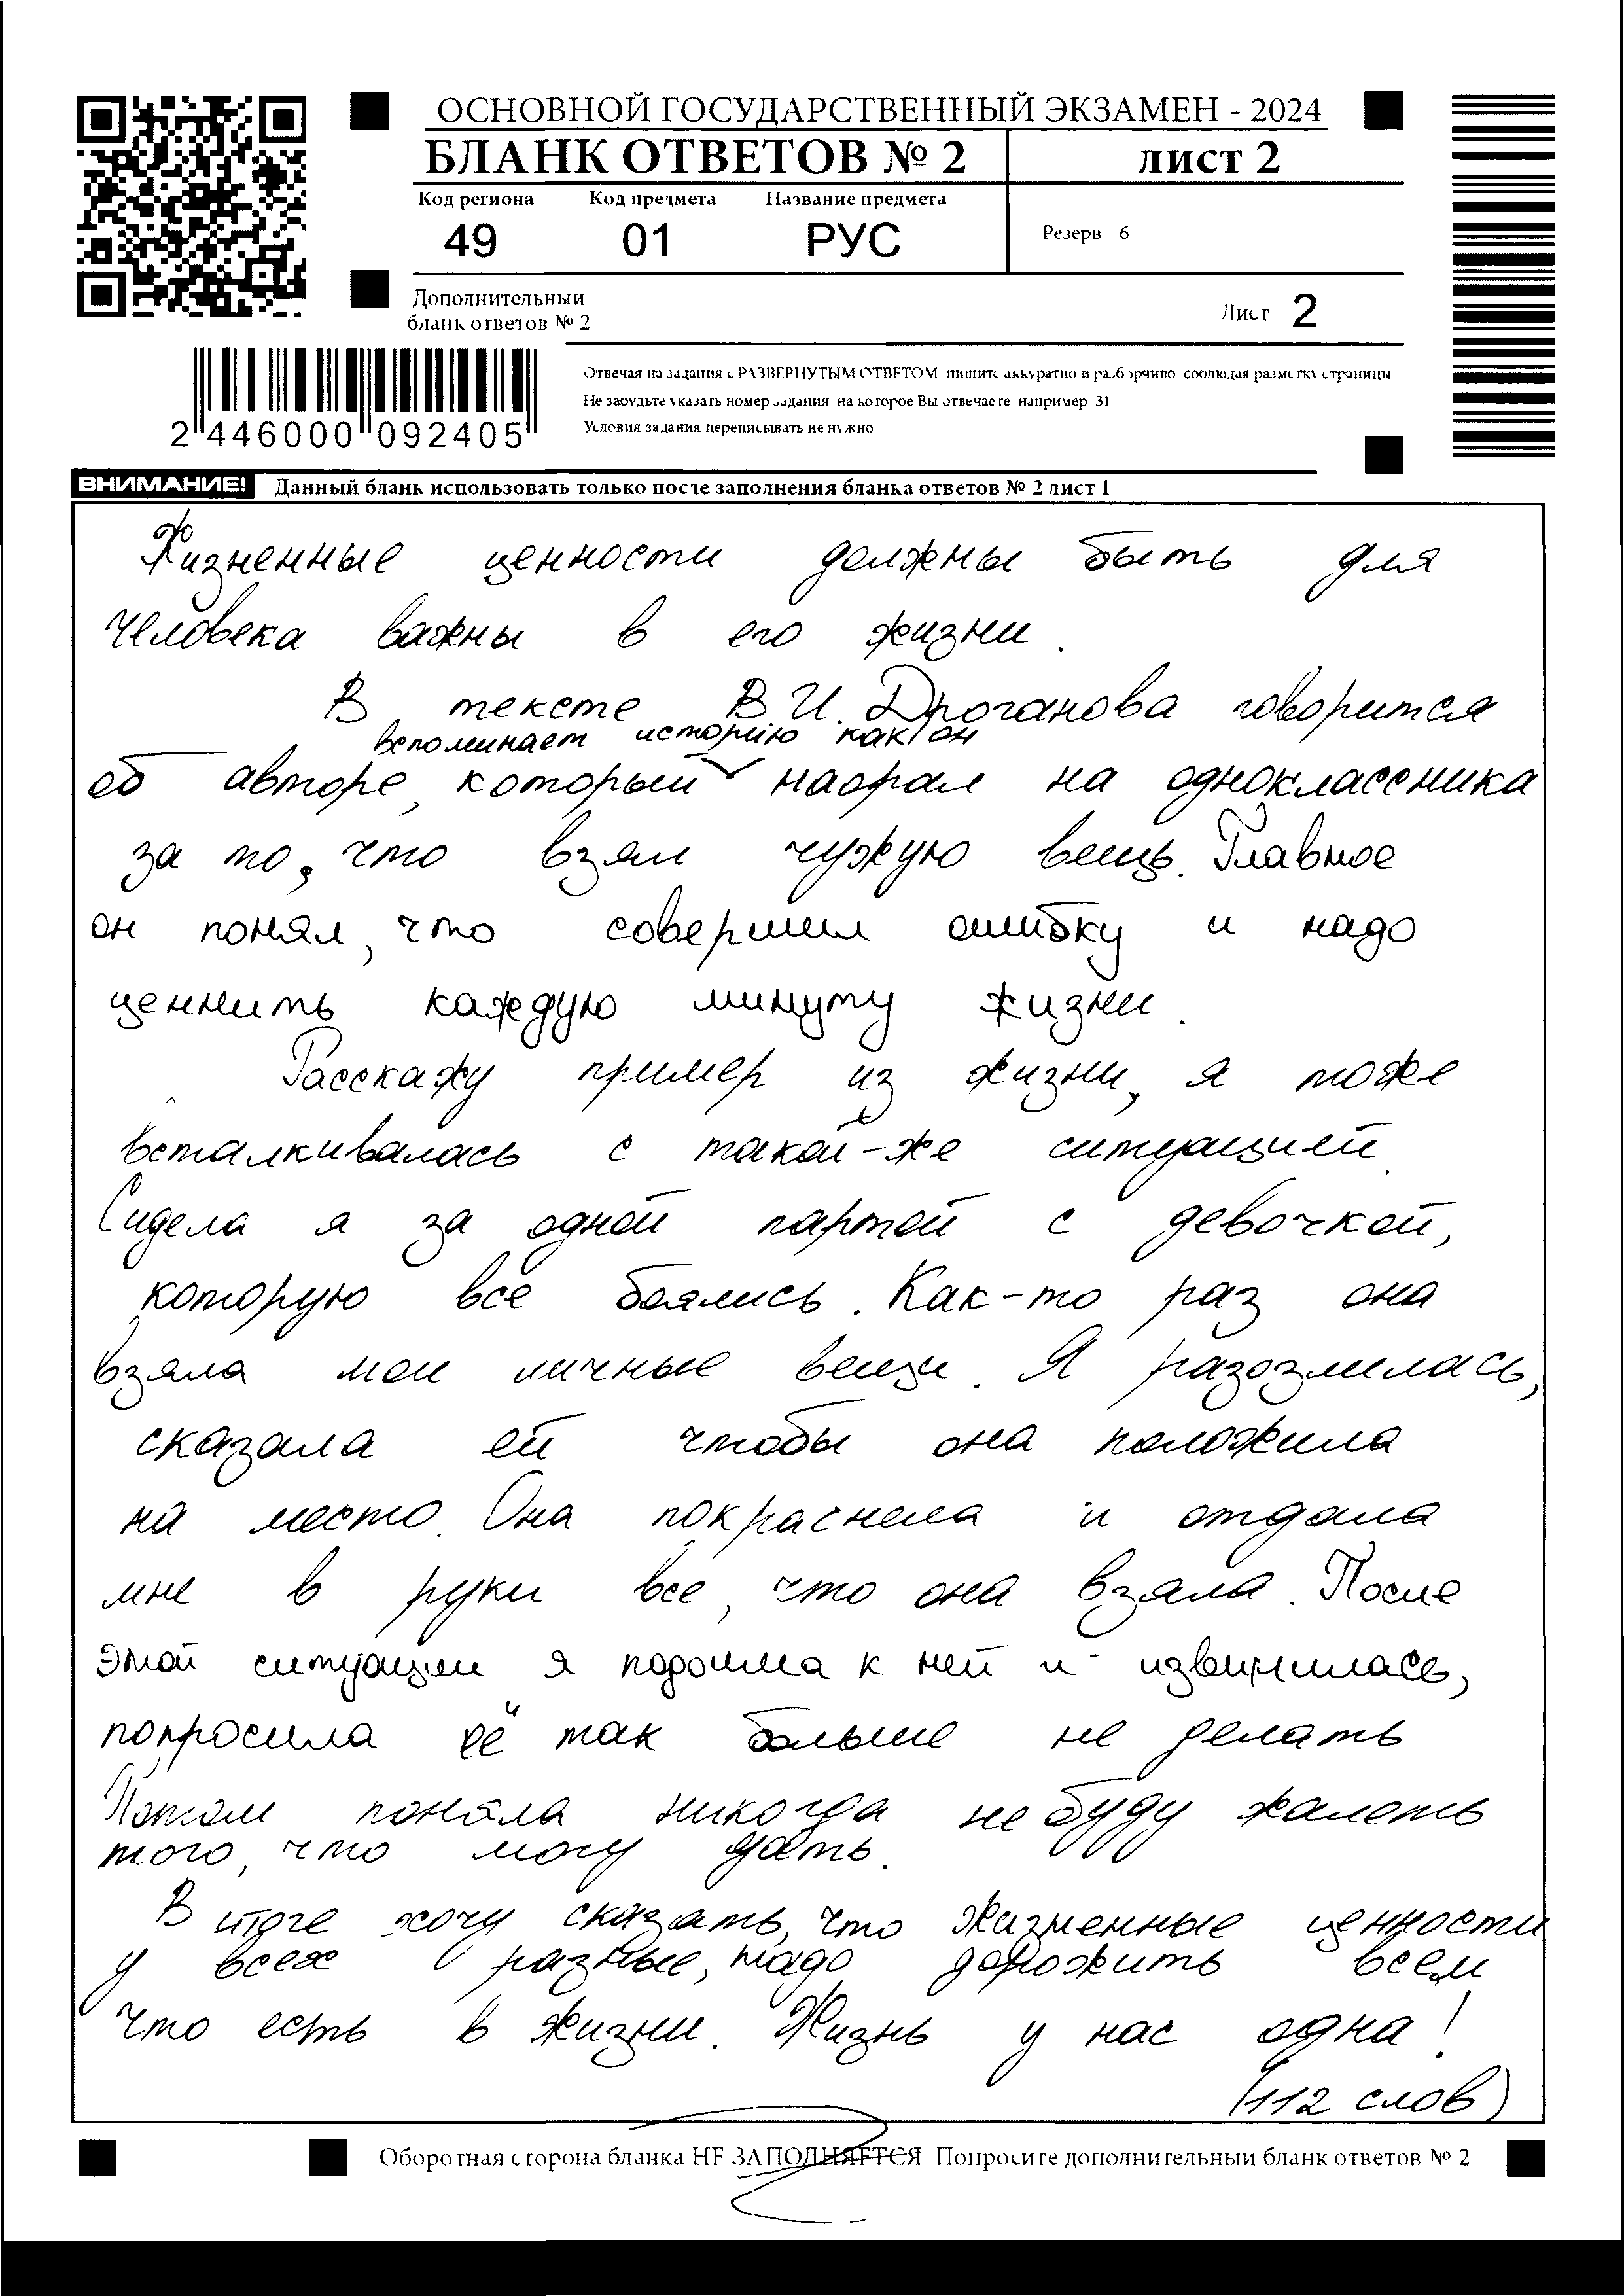 ОСНОВНОЙ ГОСУДАРСТВЕННЫЙ ЭКЗАМЕН - 2024
БЛАНК ОТВЕТОВ № 2 лист 2
Код региона Код предмета Название предмета
49 01 РУС
Резерв 6
Дополнительный
бланк ответов № 2
Лист 2
Отвечая на задания с РАЗВЕРНУТЫМ ОТВЕТОМ пишите аккуратно и разборчиво соблюдая разметку страницы
Не забудьте указать номер задания на которое Вы отвечаете например 31
Условия задания переписывать не нужно
2 446000 092405
ВНИМАНИЕ! Данный бланк использовать только после заполнения бланка ответов № 2 лист 1
Жизненные ценности должны быть для
человека важны в его жизни.
В тексте В.И. Дроганова говорится
вспоминает историю как он
об авторе, который наорал на одноклассника
за то, что взял чужую вещь. Главное
он понял, что совершил ошибку и надо
ценнить каждую минуту жизни.
Расскажу пример из жизни, я тоже
всталкивалась с такой-же ситуацией.
Сидела я за одной партой с девочкой,
которую все боялись. Как-то раз она
взяла мои личные вещи. Я разозлилась,
сказала ей чтобы она положила
на место. Она покраснела и отдала
мне в руки все, что она взяла. После
этой ситуации я подошла к ней и извинилась,
попросила её так больше не делать
Потом поняла никогда не буду жалеть
того, что могу дать.
В итоге хочу сказать, что жизненные ценности
у всех разные, надо дорожить всем
что есть в жизни. Жизнь у нас одна!
(112 слов)
Оборотная сторона бланка НЕ ЗАПОЛНЯЕТСЯ Попросите дополнительный бланк ответов № 2